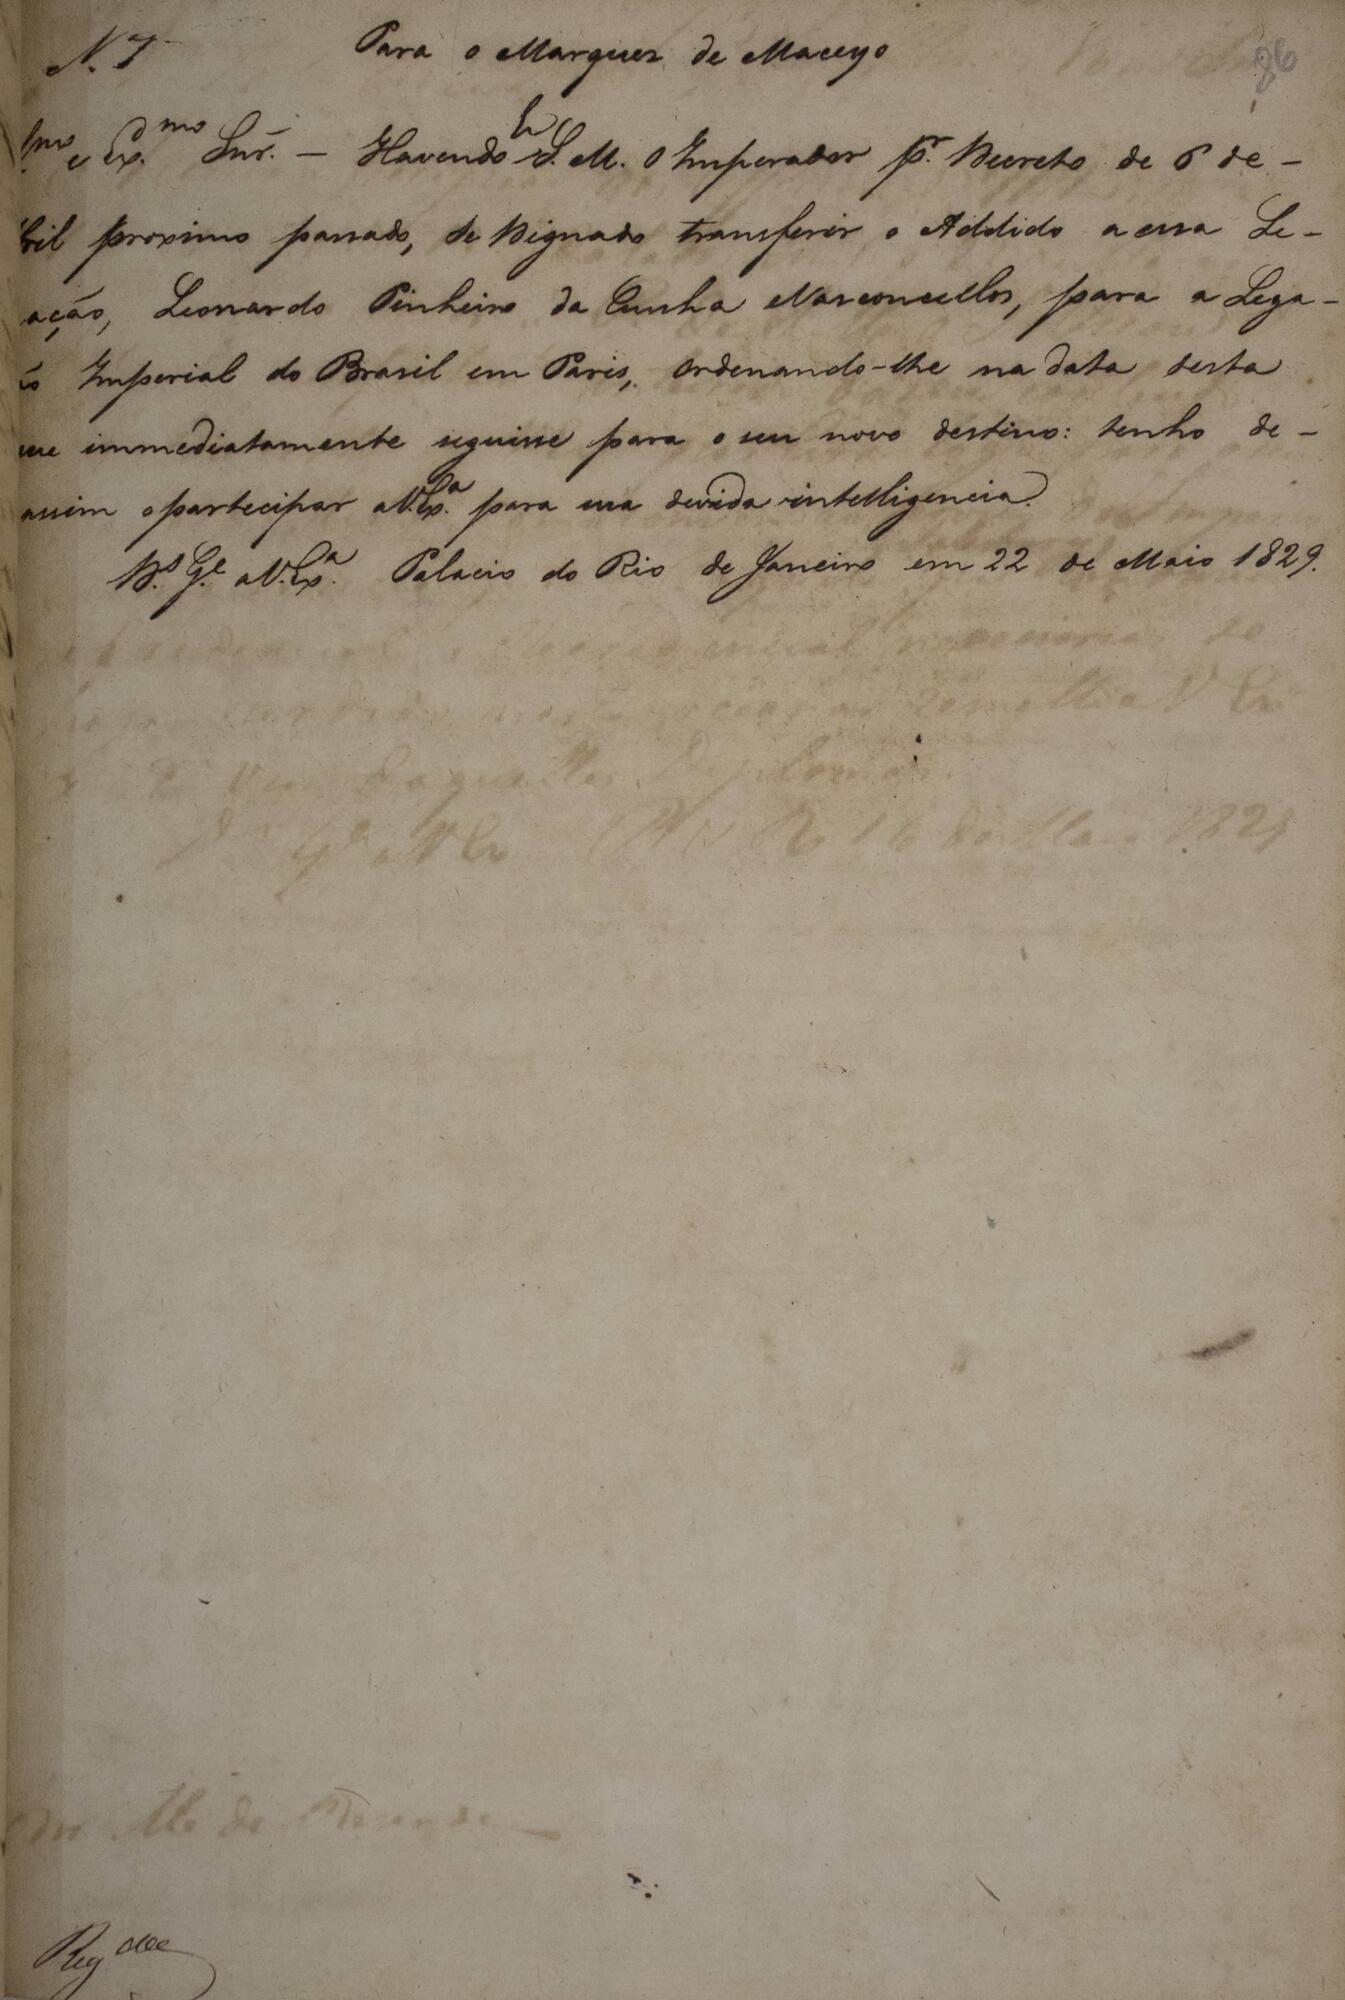 N. 7
Para o Marquez de Maceyo
86
Illmo e Exmo Snr. — Havendo S. M. O Imperador pr. Decreto de 6 de -
bril proximo passado, se Dignado transferir o Addido a essa Le-
ação, Leonardo Pinheiro da Cunha Vasconcellos, para a Lega-
ão Imperial do Brasil em Paris, ordenando-lhe na data desta
que immediatamente seguisse para o seu novo destino: tenho de-
assim o partecipar a V. Exa. para sua devida intelligencia.
Ds. Ge. a V. Exa. Palacio do Rio de Janeiro em 22 de Maio 1829.